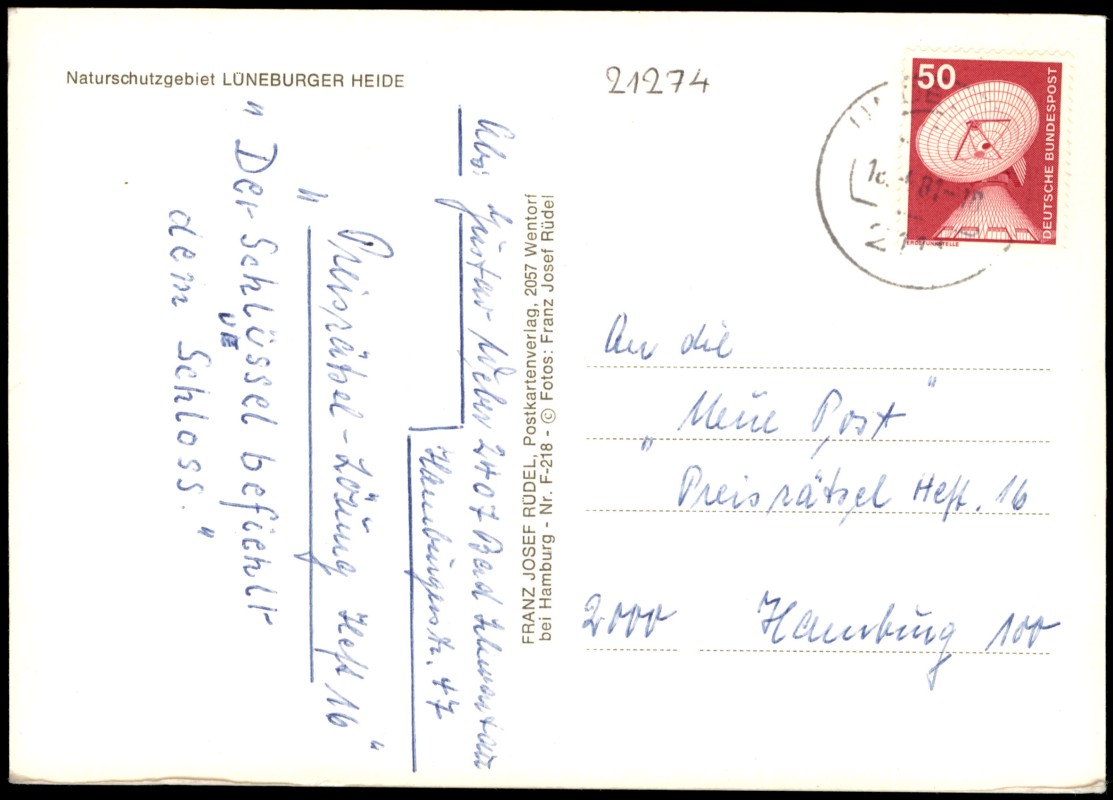 Naturschutzgebiet LÜNEBURGER HEIDE
21274
50
DEUTSCHE BUNDESPOST
ERDEFUNKSTELLE
Abs: Gustav Weber 2407 Bad Schwartau
Hamburgerstr. 47
"Preisrätsel-Lözung Heft 16"
"Der Schlüssel befiehlt
dem Schloss."
FRANZ JOSEF RÜDEL, Postkartenverlag, 2057 Wentorf
bei Hamburg - Nr. F-218 - © Fotos: Franz Josef Rüdel
An die
„Neue Post"
Preisrätsel Heft. 16
2000 Hamburg 100